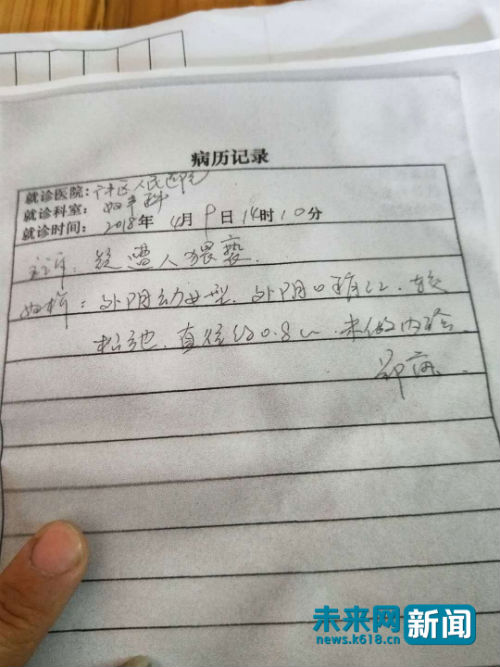 病历记录
就诊医院：区人民医院
就诊科室：妇产科
就诊时间：2018年4月9日14时10分
疑遭人猥亵.
妇检：外阴幼女型.外阴口稍红.较
松弛.直径约0.8cm.未做内
未来网 新闻
news.k618.cn